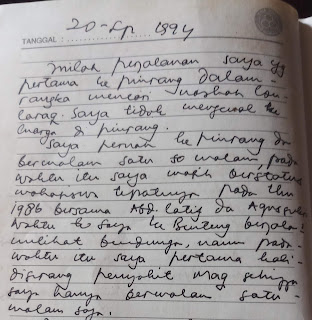 20-Sp 1994
TANGGAL :
Inilah perjalanan saya yg
pertama ke pinrang dalam
rangka mencari naskah lon-
tarag. Saya tidak mengenal ke
luarga di pinrang.
Saya pernah ke pinrang dan
bermalam satu malam, pada
waktu itu saya masih berstatus
mahasiswa tepatnya pada thn
1986 bersama Abd. latif da
waktu ke saya ke Benteng berjalan
melihat bendungan, namun pada
waktu itu saya pertama kali
diserang penyakit mag sehingga
saya hanya bermalam satu
malam saja.